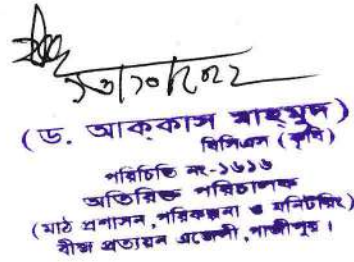 ১৩/১০/২০২২
(ড. আক্কাস মাহমুদ)
বিসিএস (কৃষি)
পরিচিতি নং-১৬১৬
অতিরিক্ত পরিচালক
(মাঠ প্রশাসন, পরিকল্পনা ও মনিটরিং)
বীজ প্রত্যয়ন এজেন্সী, গাজীপুর।